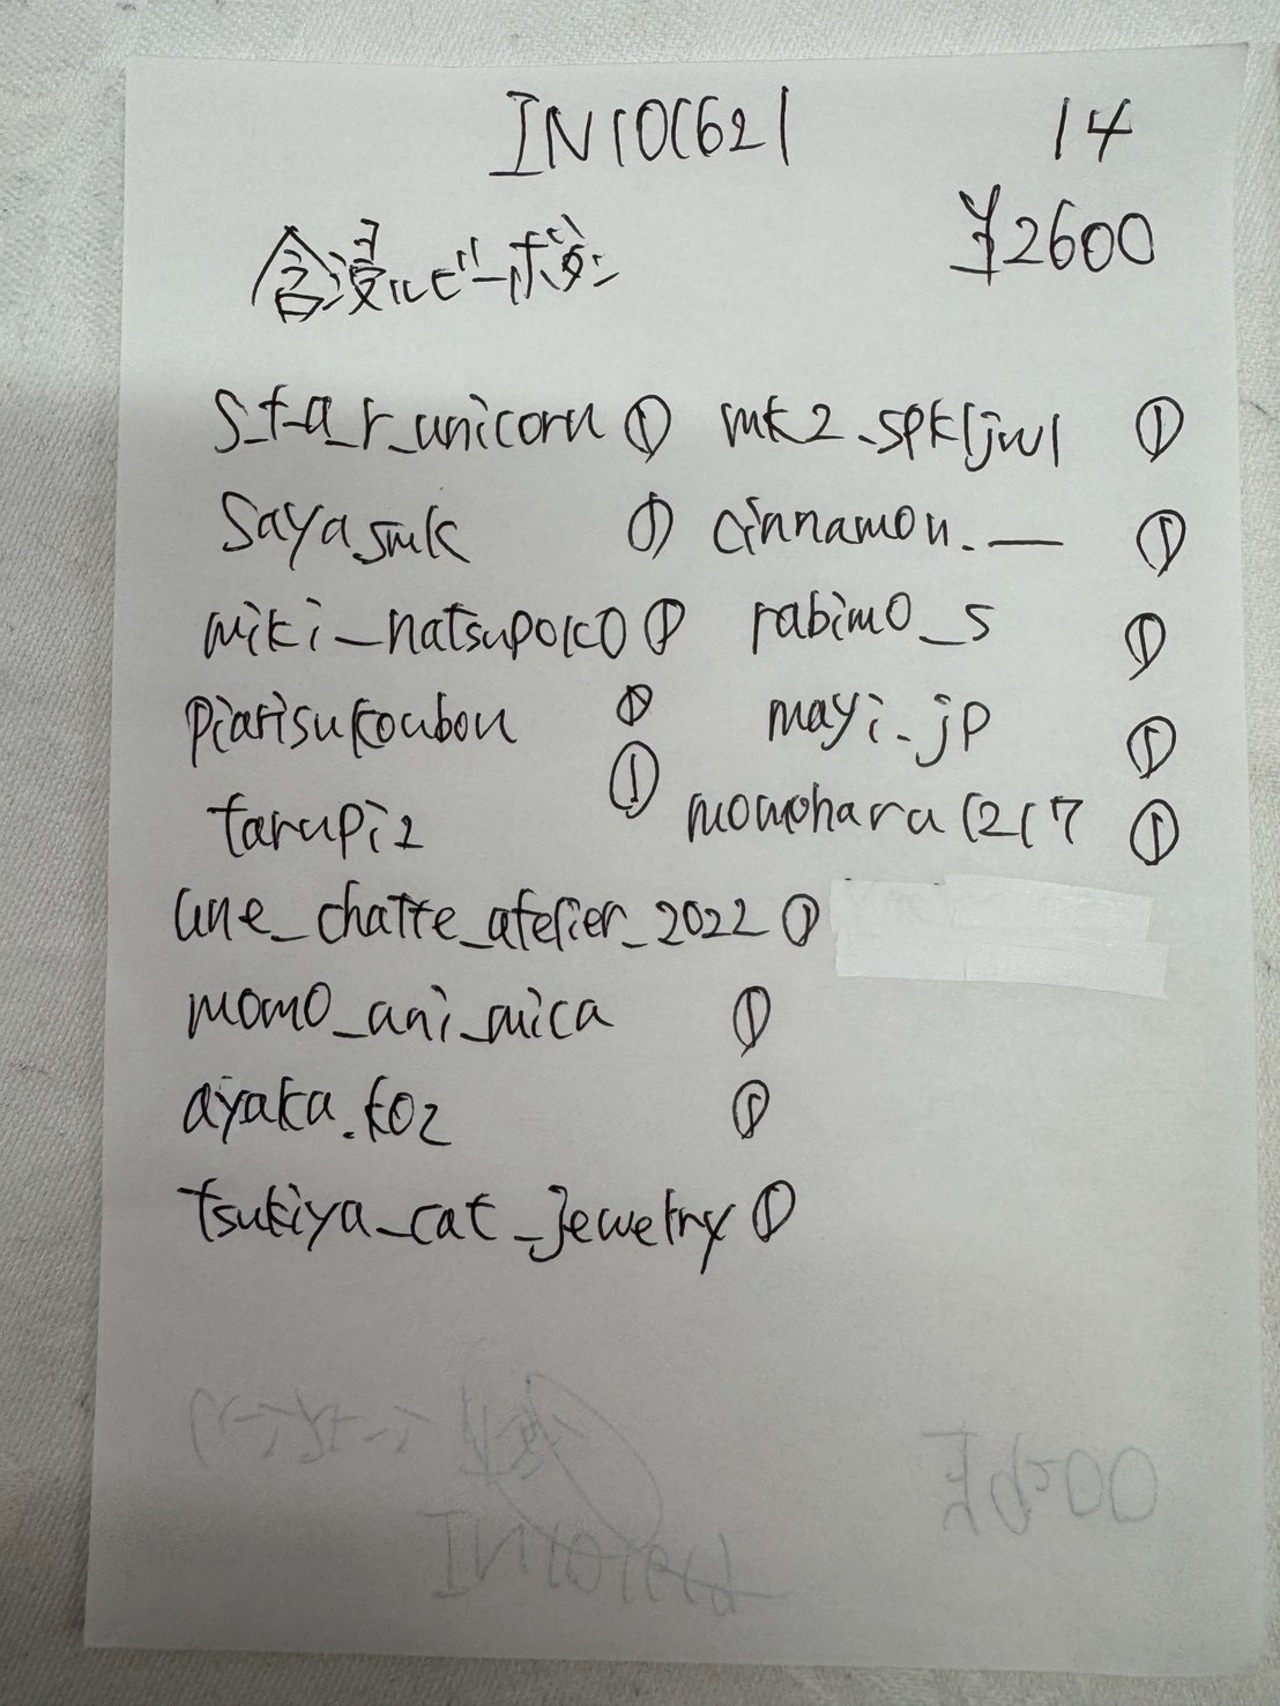 IN101621 14
¥2600
含浸ルビー
s_t_a_r_unicorn ① mk2_spkljwl ①
saya_smk ① cinnamon._ ①
miki_natsupoko ① rabimo_s ①
piarisukoubou ① mayi.jp ①
tarupi2 ① momohara1217 ①
une_chatte_atelier_2022 ①
momo_ani_mica ①
ayaka.koz ①
tsukiya_cat_jewelry ①